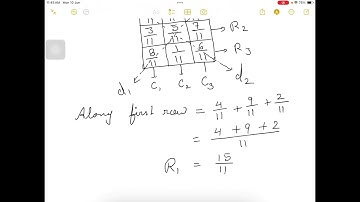 11:43 AM Mon 10 Jun
75%
11 11 11
3/11 5/11 7/11 → R2
8/11 1/11 6/11 → R3
d1 C1 C2 C3 d2
Along first row = 4/11 + 9/11 + 2/11
= 4 + 9 + 2/11
R1 = 15/11